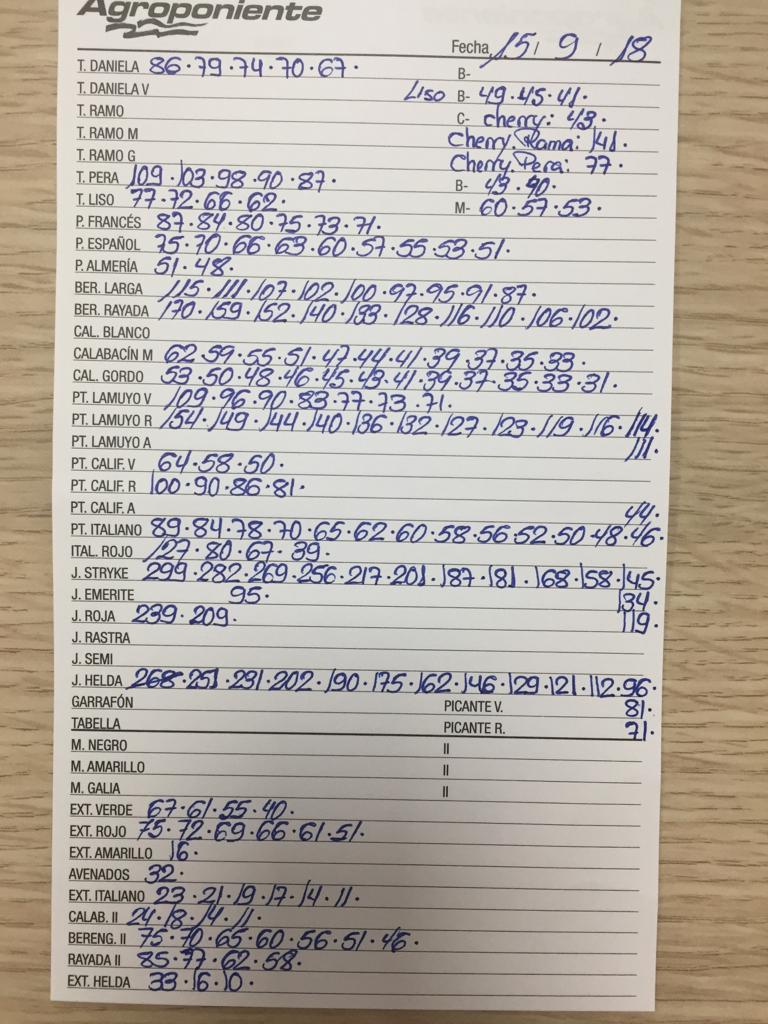 Agroponiente
Fecha 15 / 9 / 18
T. DANIELA 86.79.74.70.67. B-
T. DANELA V Liso B- 49.45.41.
T. RAMO C- cherry: 43.
T. RAMO M Cherry Rama: 141.
T. RAMO G Cherry Pera: 77.
T. PERA 109.103.98.90.87. B- 43.40.
T. LISO 77.72.66.62. M- 60.57.53.
P. FRANCÉS 87.84.80.75.73.71.
P. ESPAÑOL 75.70.66.63.60.57.55.53.51.
P. ALMERÍA 51.48.
BER. LARGA 115.111.107.102.100.97.95.91.87.
BER. RAYADA 170.159.152.140.133.128.116.110.106.102.
CAL. BLANCO
CALABACÍN M 62.59.55.51.47.44.41.39.37.35.33.
CAL. GORDO 53.50.48.46.45.43.41.39.37.35.33.31.
PT. LAMUYO V 109.96.90.83.77.73.71.
PT. LAMUYO R 154.149.144.140.136.132.127.123.119.116.114.
PT. LAMUYO A 111.
PT. CALIF. V 64.58.50.
PT. CALIF. R 100.90.86.81.
PT. CALIF. A 44.
PT. ITALIANO 89.84.78.70.65.62.60.58.56.52.50.48.46.
ITAL. ROJO 127.80.67.39.
J. STRYKE 299.282.269.256.217.201.187.181.168.158.145.
J. EMERITE 95. 134.
J. ROJA 239.209. 119.
J. RASTRA
J. SEMI
J. HELDA 268.251.231.202.190.175.162.146.129.121.112.96.
GARRAFÓN PICANTE V. 81.
TABELLA PICANTE R. 71.
M. NEGRO II
M. AMARILLO II
M. GALIA II
EXT. VERDE 67.61.55.40.
EXT. ROJO 75.72.69.66.61.51.
EXT. AMARILLO 16.
AVENADOS 32.
EXT. ITALIANO 23.21.19.17.14.11.
CALAB. II 24.18.14.11.
BERENG. II 75.70.65.60.56.51.46.
RAYADA II 85.77.62.58.
EXT. HELDA 33.16.10.